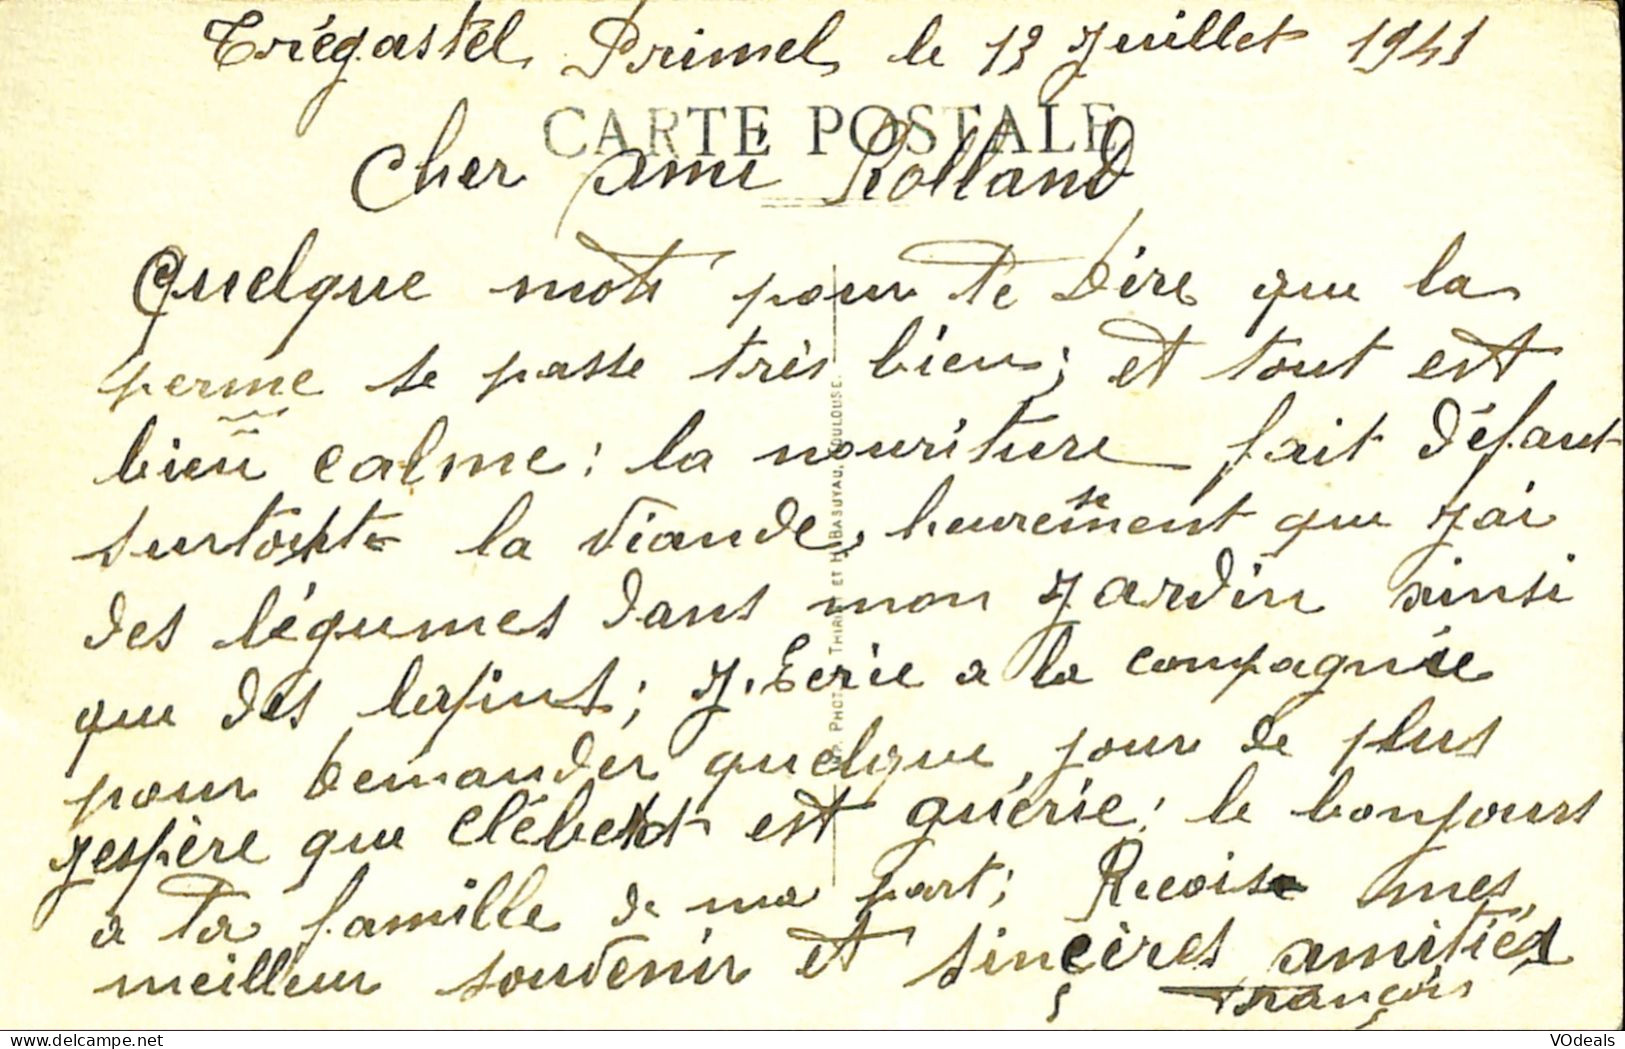 Trégastel Primel le 13 Juillet 1941
CARTE POSTALE
Cher ami Rolland
Quelque mots pour te dire que la
perme se passe très bien; et tout est
bien calme: la nouriture fait défaut
surtout la viande, heuresement que j'ai
des légumes dans mon jardin ainsi
que des lapins; J. Ecrie a la compagnie
pour demander quelque jour de plus
j'espère que Clébert est guérie; le bonjours
a ta famille de ma part; Recoise mes
meilleur souvenir et sinçères amitiés
François
IMP. PHOT. THIRIAT ET H. BASUYAU, TOULOUSE.
VOdeals
delcampe.net